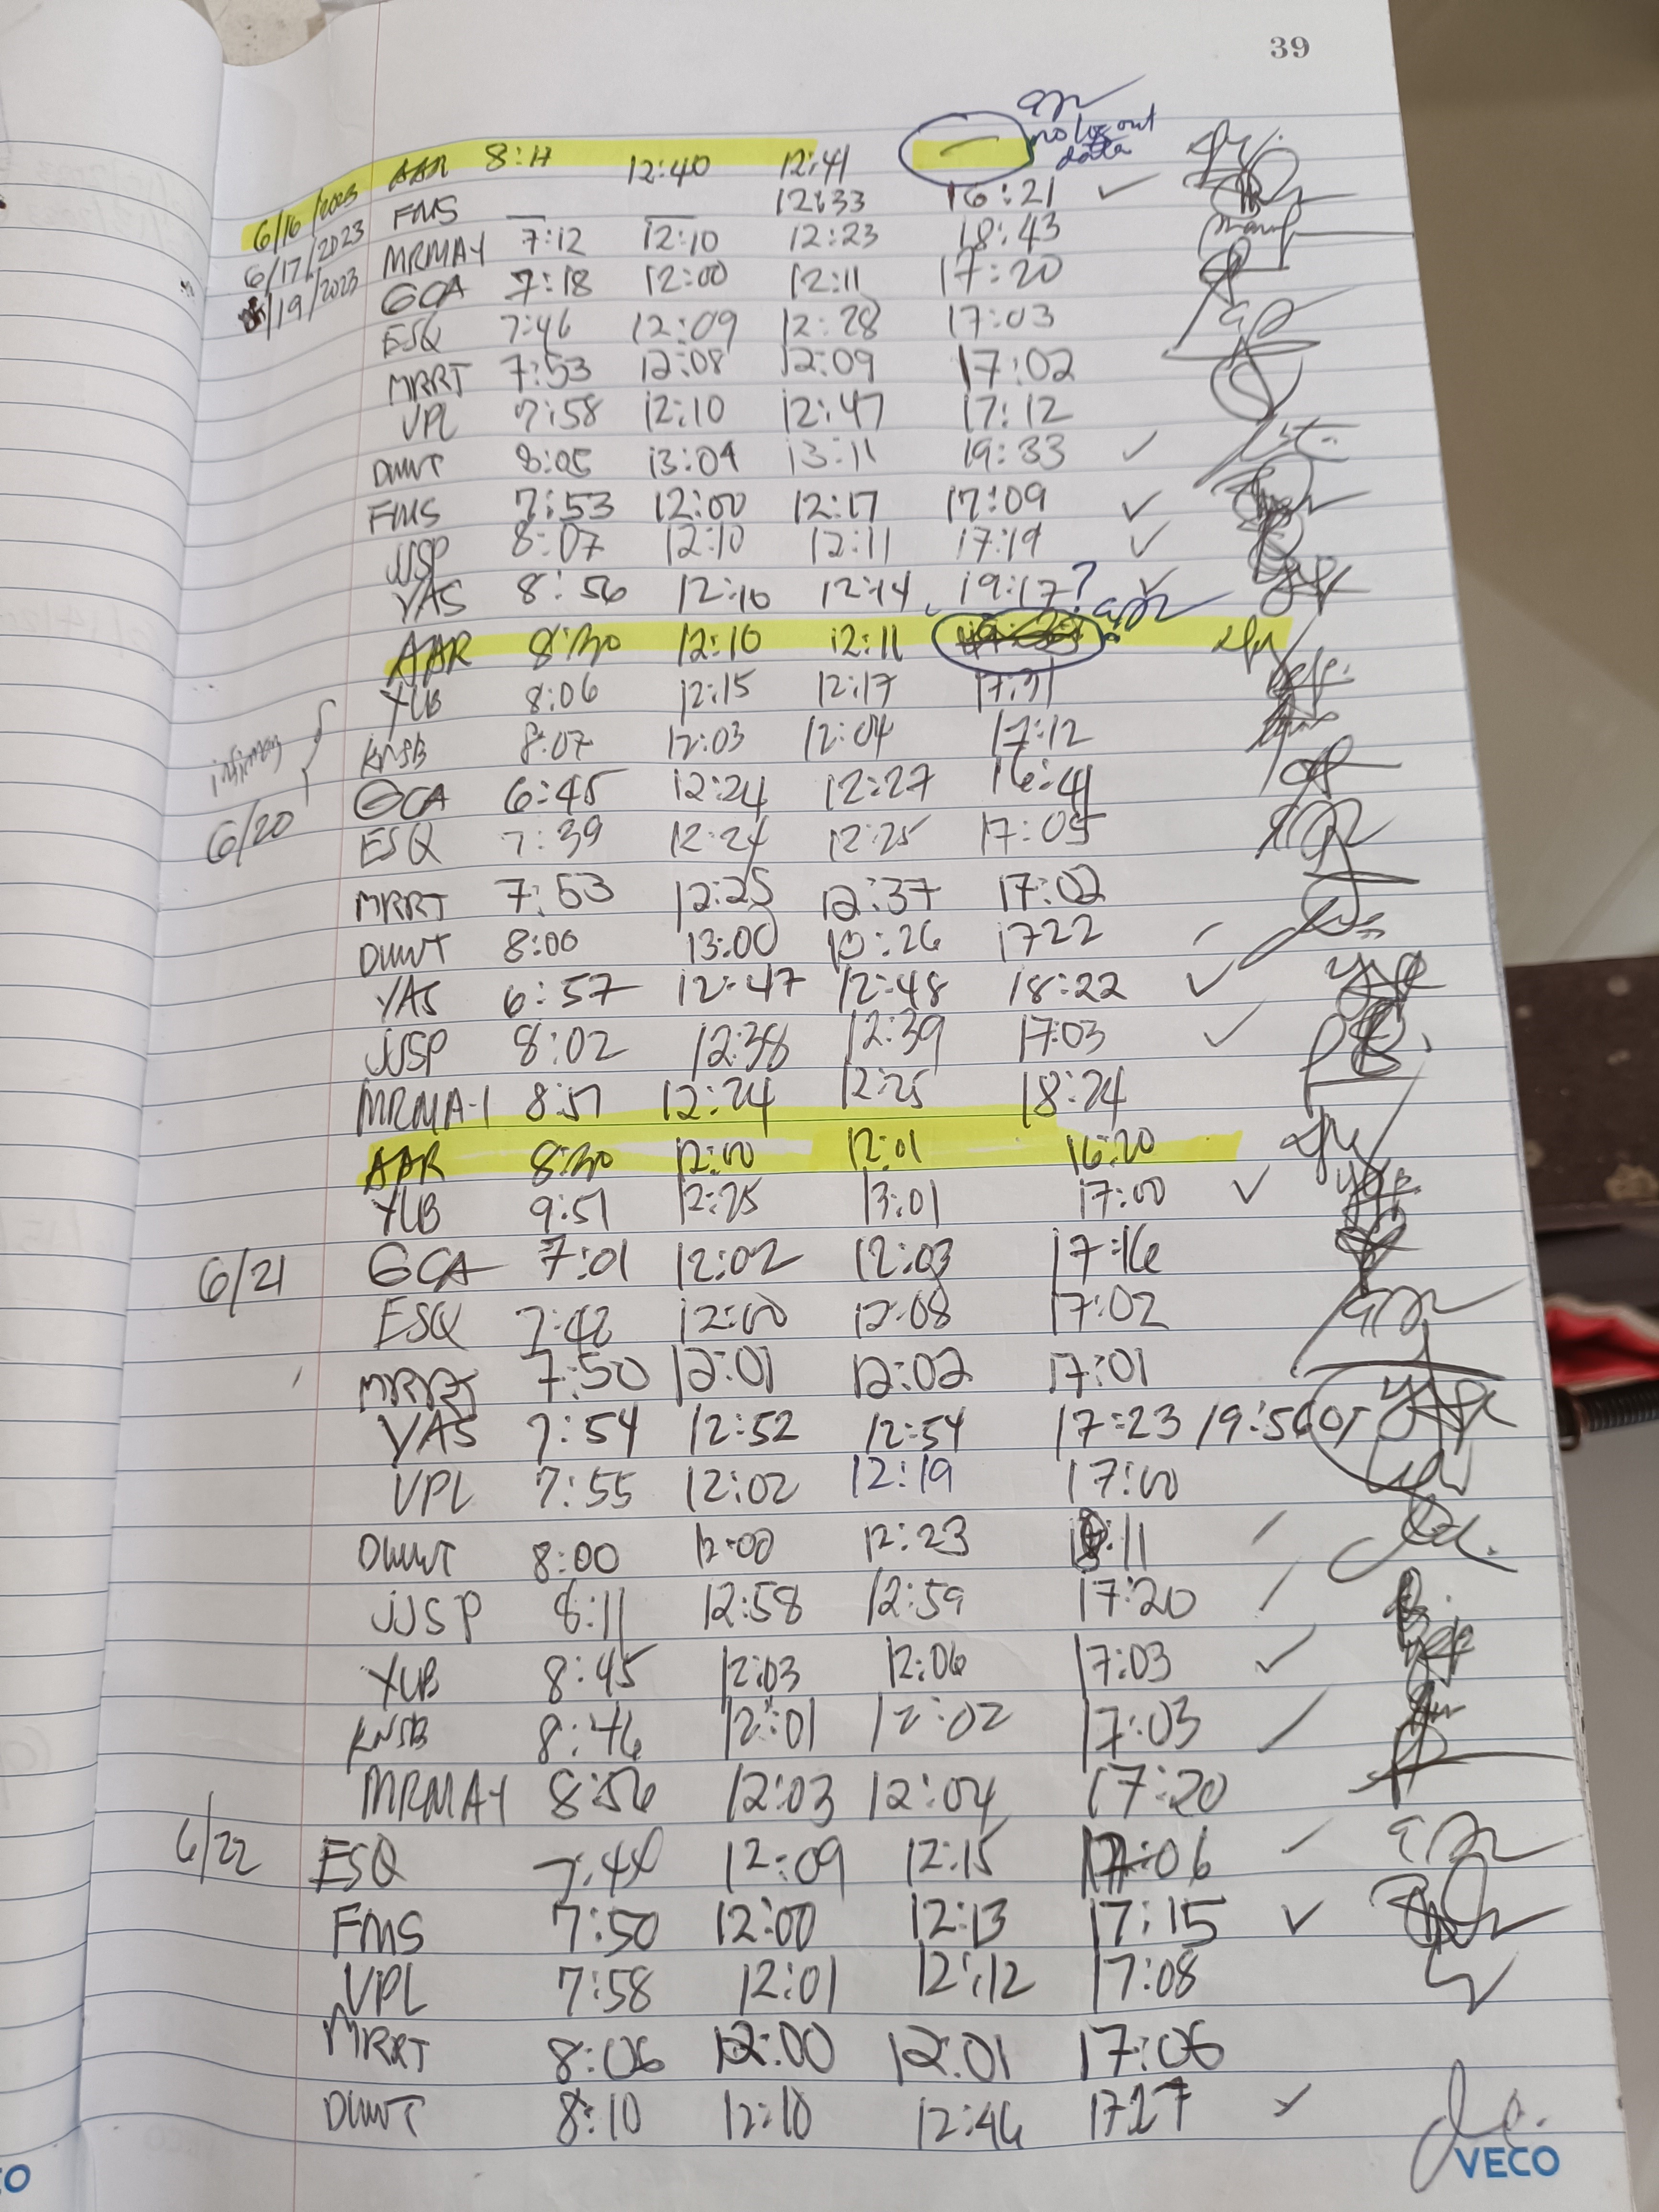 39
6/16/2023 AAR 8:17 12:40 12:41 — no log out data
6/17/2023 FMS — — 12:33 16:21 ✓
6/19/2023 MRMAY 7:12 12:10 12:23 18:43
GCA 7:18 12:00 12:11 17:20
ESQ 7:46 12:09 12:28 17:03
MRRT 7:53 12:08 12:09 17:02
VPL 7:58 12:10 12:47 17:12
DWVT 8:05 13:04 13:11 19:33 ✓
FMS 7:53 12:00 12:17 17:09 ✓
JJSP 8:07 12:10 12:11 17:19 ✓
YAS 8:56 12:10 12:14 19:17? ✓
AAR 8:30 12:10 12:11
YLB 8:06 12:15 12:17 17:31
KNSB 8:07 12:03 12:04 17:12
6/20 GCA 6:45 12:24 12:27 16:41
ESQ 7:39 12:24 12:25 17:05
MRRT 7:53 12:25 12:37 17:02
DWVT 8:00 13:00 1722
YAS 6:57 12:47 12:48 18:22 ✓
JJSP 8:02 12:38 12:39 17:03 ✓
MRMAY 8:51 12:24 12:25 18:24
AAR 8:30 12:00 12:01 16:20
YLB 9:51 12:25 13:01 17:00 ✓
6/21 GCA 7:01 12:02 12:03 17:16
ESQ 7:42 12:00 12:08 17:02
MRRT 7:50 12:01 12:02 17:01
YAS 7:54 12:52 12:54 17:23 19:56 OT
VPL 7:55 12:02 12:19 17:00
DWVT 8:00 12:00 12:23
JJSP 8:11 12:58 12:59 17:20
YLB 8:45 12:03 12:06 17:03 ✓
KNSB 8:46 12:01 12:02 17:03
MRMAY 8:56 12:03 12:04 17:20
6/22 ESQ 7:44 12:09 12:15 17:06
FMS 7:50 12:00 12:13 17:15 ✓
VPL 7:58 12:01 12:12 17:08
MRRT 8:06 12:00 12:01 17:06
DWVT 8:10 12:10 12:46 1727 ✓
VECO